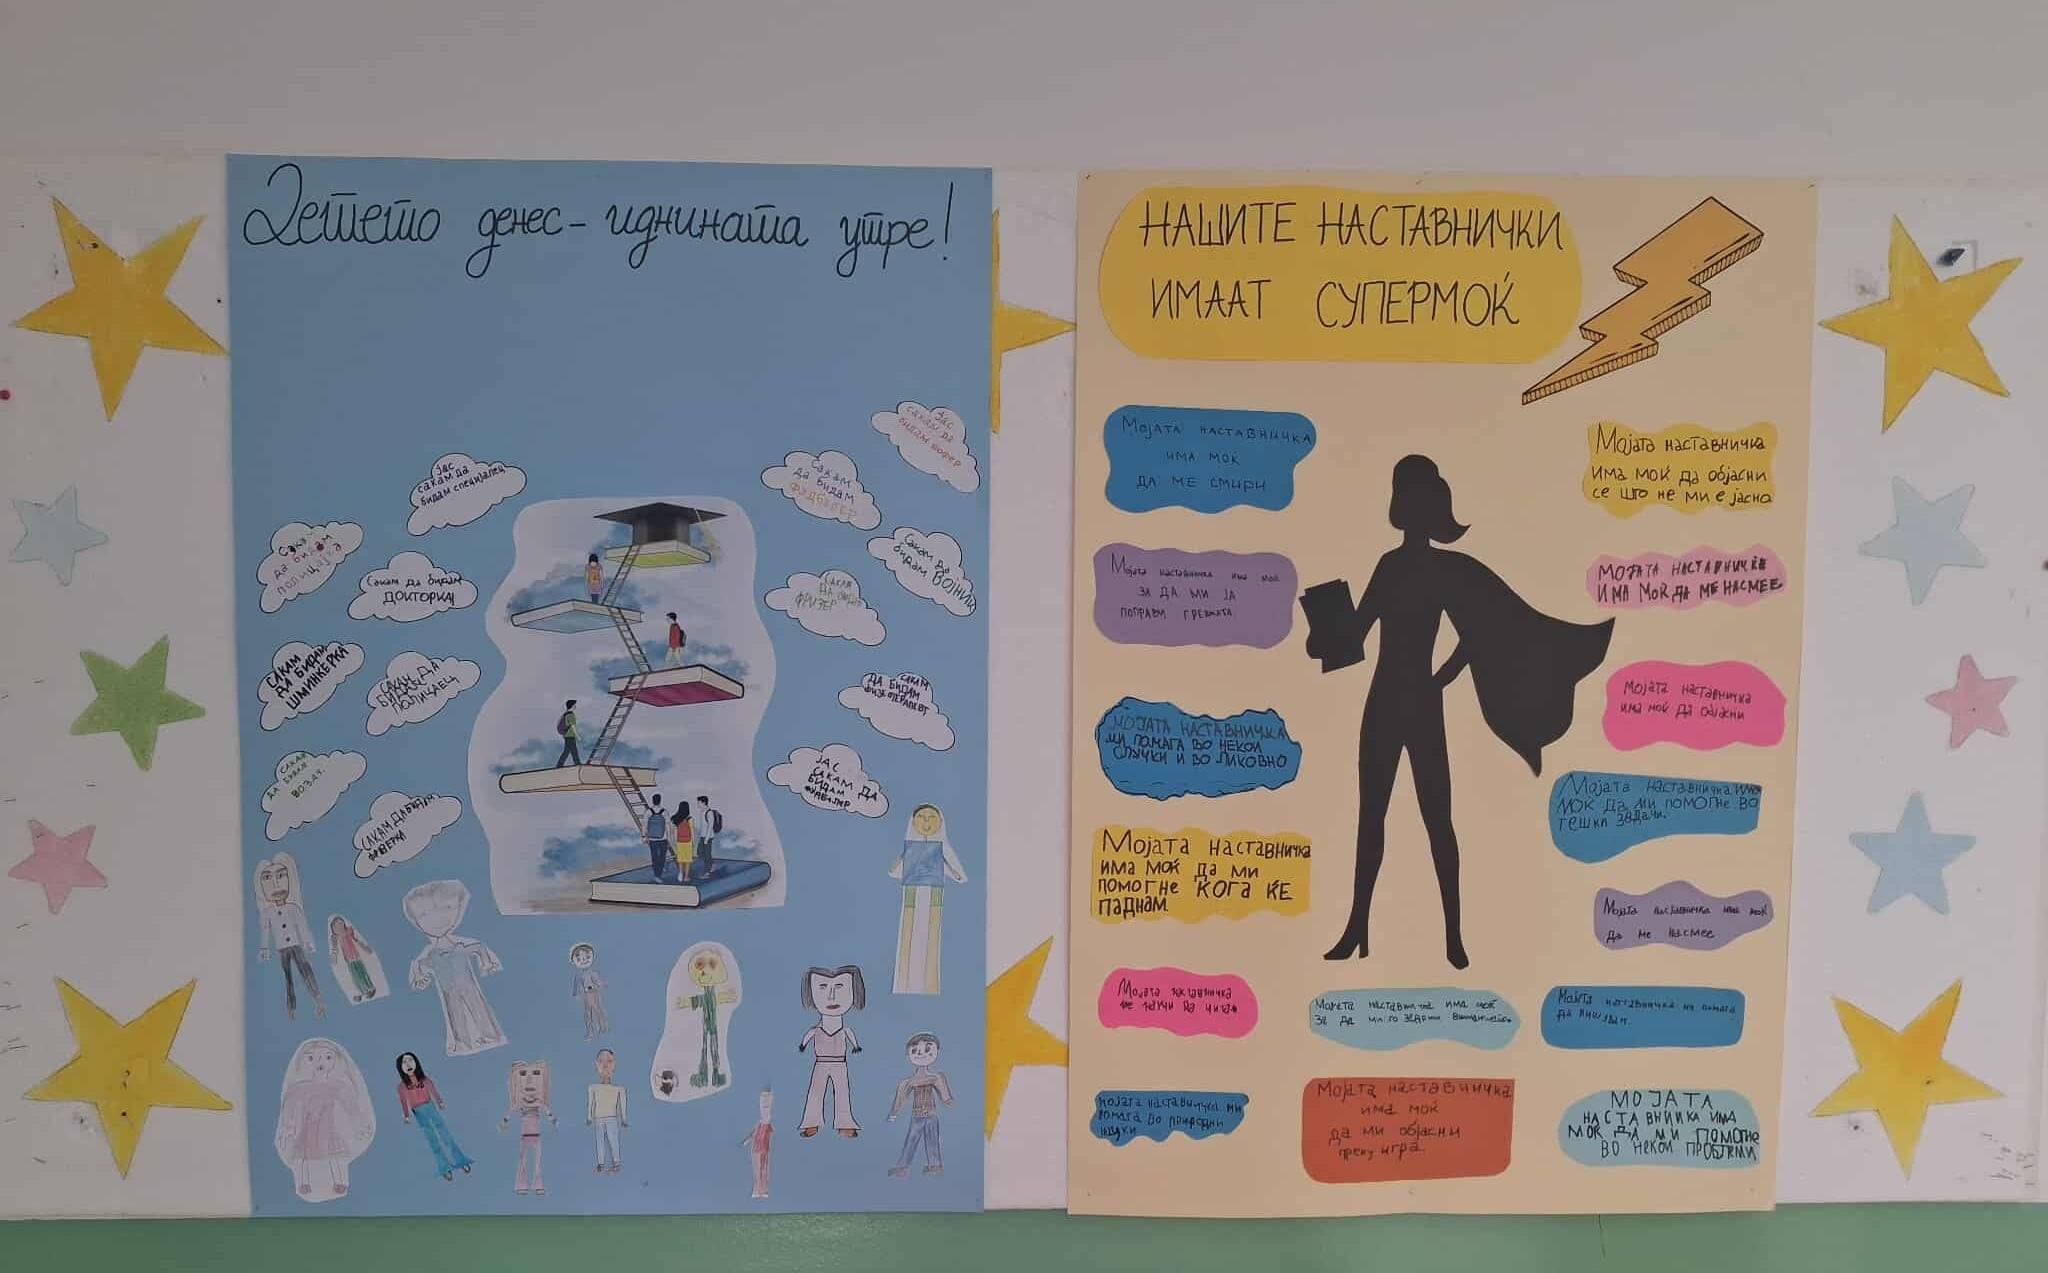 Детето денес - иднината утре!
Јас
сакам да
бидам специјалец
Сакам
да бидам
полицајка
Сакам да бидам
ДОКТОРКА!
САКАМ
ДА БИДАМ
ШМИНКЕРКА
САКАМ ДА
БИДАМ
ПОЛИЦАЕЦ
САКАМ
ДА БИДАМ
ВОЗАЧ.
САКАМ ДА БИДАМ
ЈАС
САКАМ ДА
БИДАМ
САКАМ
ДА БИДАМ
ФУДБАЛЕР
САКАМ ДА
БИДАМ ВОЈНИК
САКАМ
ДА БИДАМ
ФРИЗЕР
САКАМ
ДА БИДАМ
ФИЗИОТЕРАПЕВТ
ЈАС
САКАМ ДА
БИДАМ
НАШИТЕ НАСТАВНИЧКИ
ИМААТ СУПЕРМОЌ
Мојата наставничка
има моќ
да ме смири
Мојата наставничка има моќ
за да ми ја
поправи грешката
МОЈАТА НАСТАВНИЧКА
МИ ПОМАГА ВО НЕКОИ
СЛУЧКИ И ВО ЛИКОВНО
Мојата наставничка
има моќ да ми
помогне КОГА ЌЕ
ПАДНАМ
Мојата наставничка
ме научи да читам
Мојата наставничка ми
помага во природни
науки
Мојата наставничка има моќ
за да ми го задржи вниманието
Мојата наставничка
има моќ
да ми објасни
преку игра.
Мојата наставничка
има моќ да објасни
се што не ми е јасно
МОЈАТА НАСТАВНИЧКЕ
ИМА МОЌ ДА МЕ НАСМЕЕ
Мојата наставничка
има моќ да објасни
Мојата наставничка има
моќ да ми помогне во
тешки задачи.
Мојата наставничка има моќ
да ме насмее
Мојата наставничка ми помага
да пишувам.
МОЈАТА
НАСТАВНИЧКА ИМА
МОЌ ДА МИ ПОМОГНЕ
ВО НЕКОИ ПРОБЛЕМИ